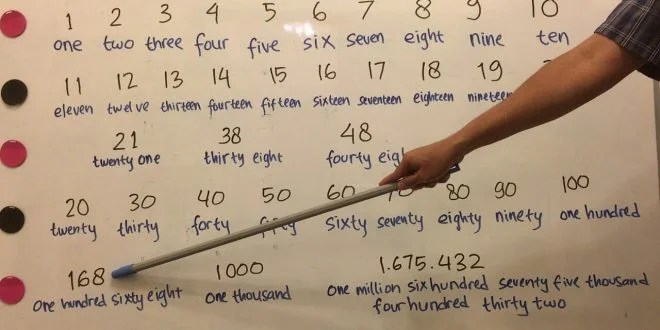 1 2 3 4 5 6 7 8 9 10
one two three four five six seven eight nine ten
11 12 13 14 15 16 17 18 19
eleven twelve thirteen fourteen fifteen sixteen seventeen eighteen nineteen
21 38 48
twenty one thirty eight fourty eight
20 30 40 50 60 70 80 90 100
twenty thirty forty fifty sixty seventy eighty ninety one hundred
168 1000 1.675.432
one hundred sixty eight one thousand one million six hundred seventy five thousand
four hundred thirty two